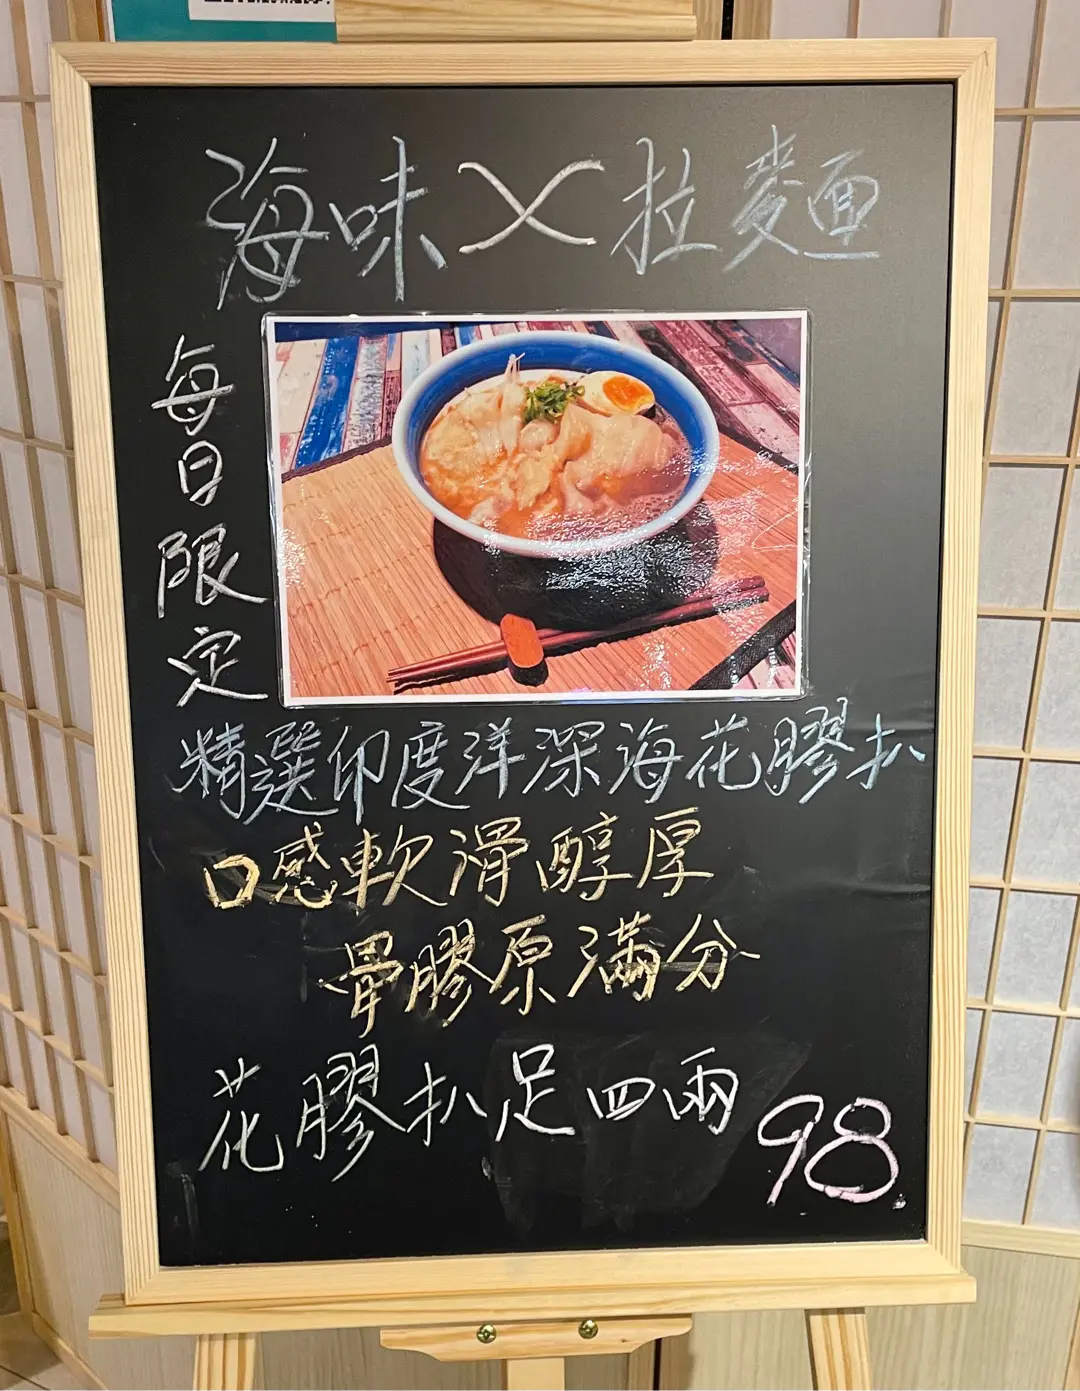 海味X拉麵
每日限定
精選印度洋深海花膠扒
口感軟滑醇厚
骨膠原滿分
花膠扒足四兩
98